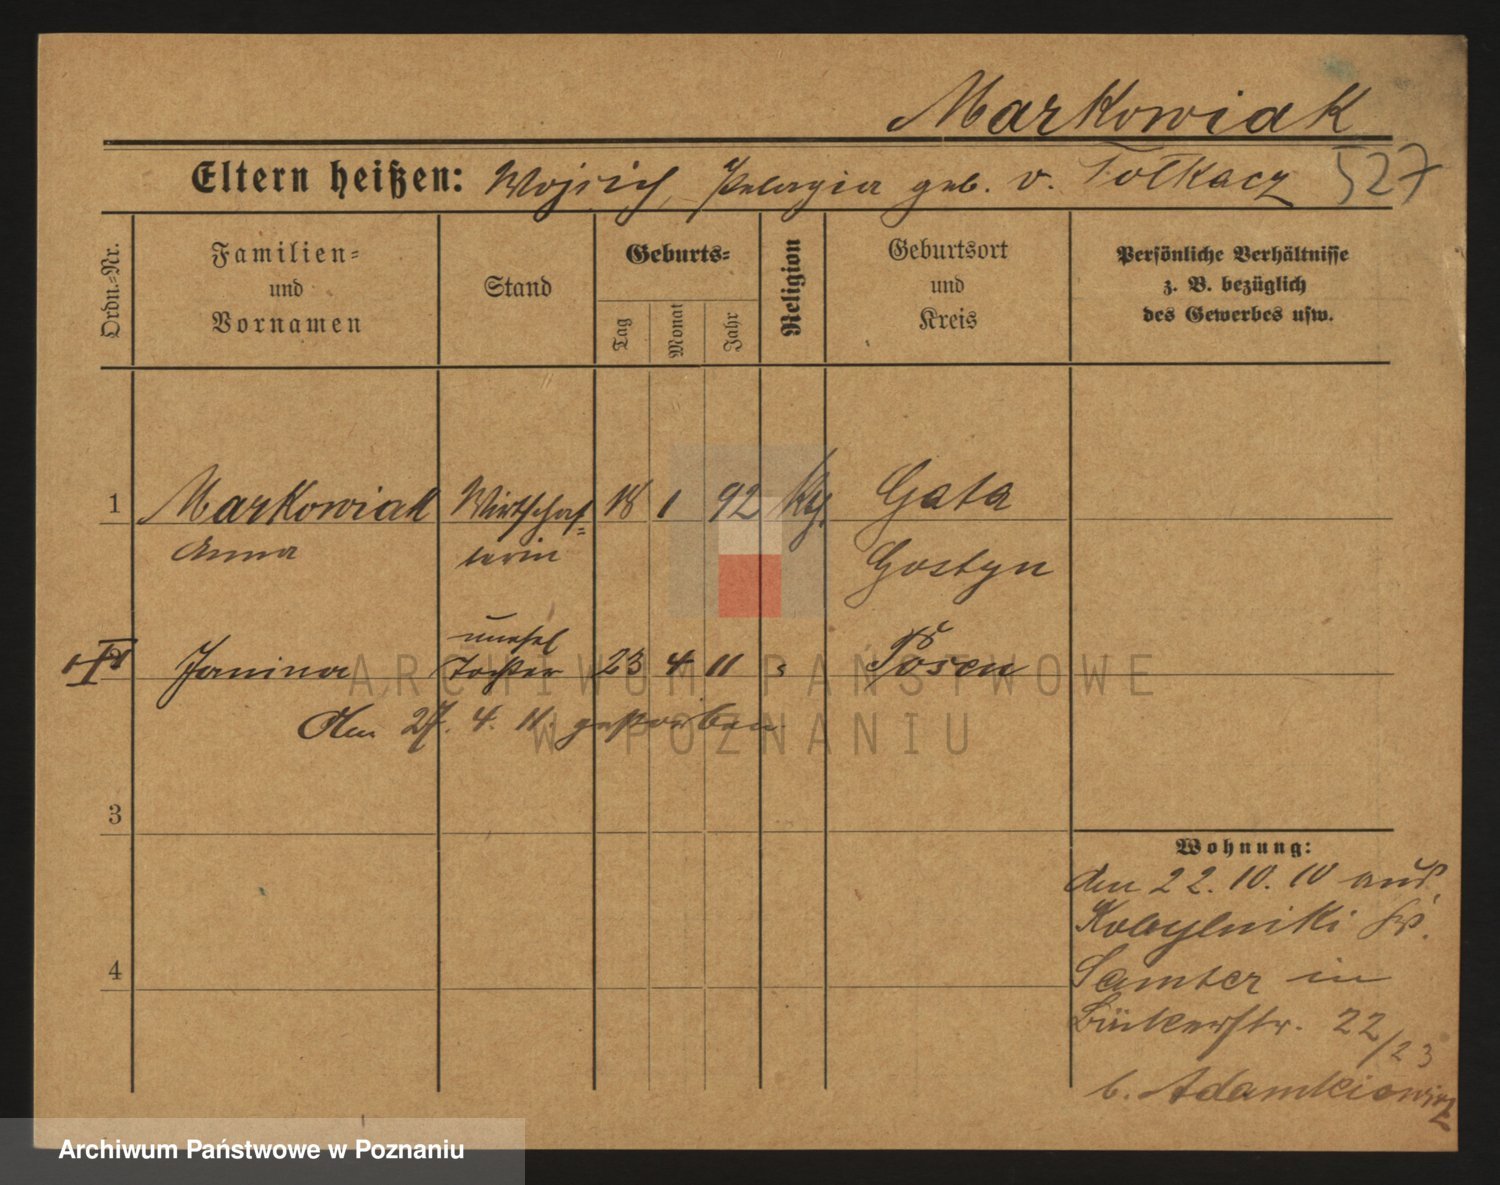 Markowiak
Eltern heißen: Wojcich, Pelagia geb. v. Tolkacz 527
Ordn.-Nr.
Familien-
und
Vornamen
Stand
Geburts-
Tag
Monat
Jahr
Religion
Geburtsort
und
Kreis
Persönliche Verhältnisse
z. B. bezüglich
des Gewerbes usw.
1 Markowiak Wirtschaf- 18 1 92 Kg. Gola
Anna terin Gostyn
unehel
Janina Tochter 23 4 11 " Posen
Am 27. 4. 11. gestorben
3
4
Wohnung:
den 22.10.10 aus
Kobylniki Kr.
Samter in
Bäckerstr. 22/23
b. Adamkiewicz
ARCHIWUM PAŃSTWOWE
W POZNANIU
Archiwum Państwowe w Poznaniu